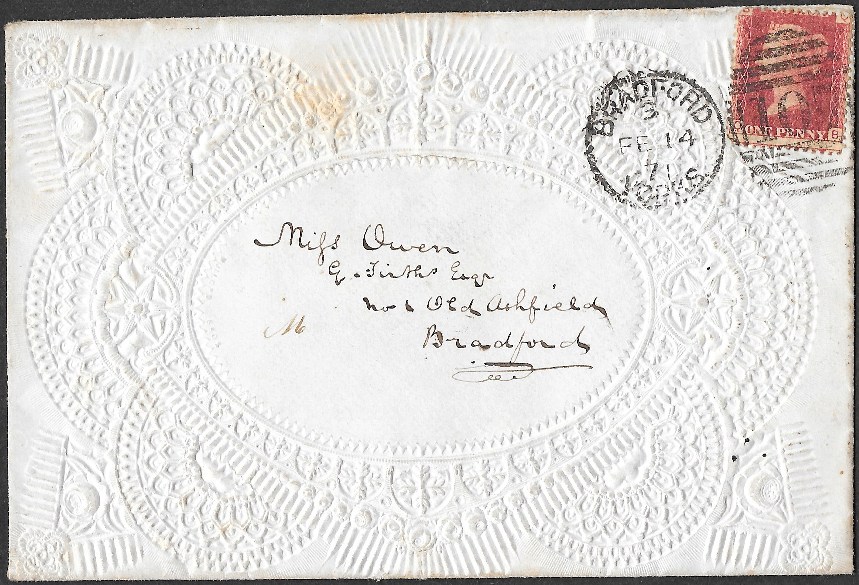 BRADFORD
FE 14
71
YORKS
107
ONE PENNY
Miss Owen
G. Firths Esqr
No 1 Old Ashfield
Bradford